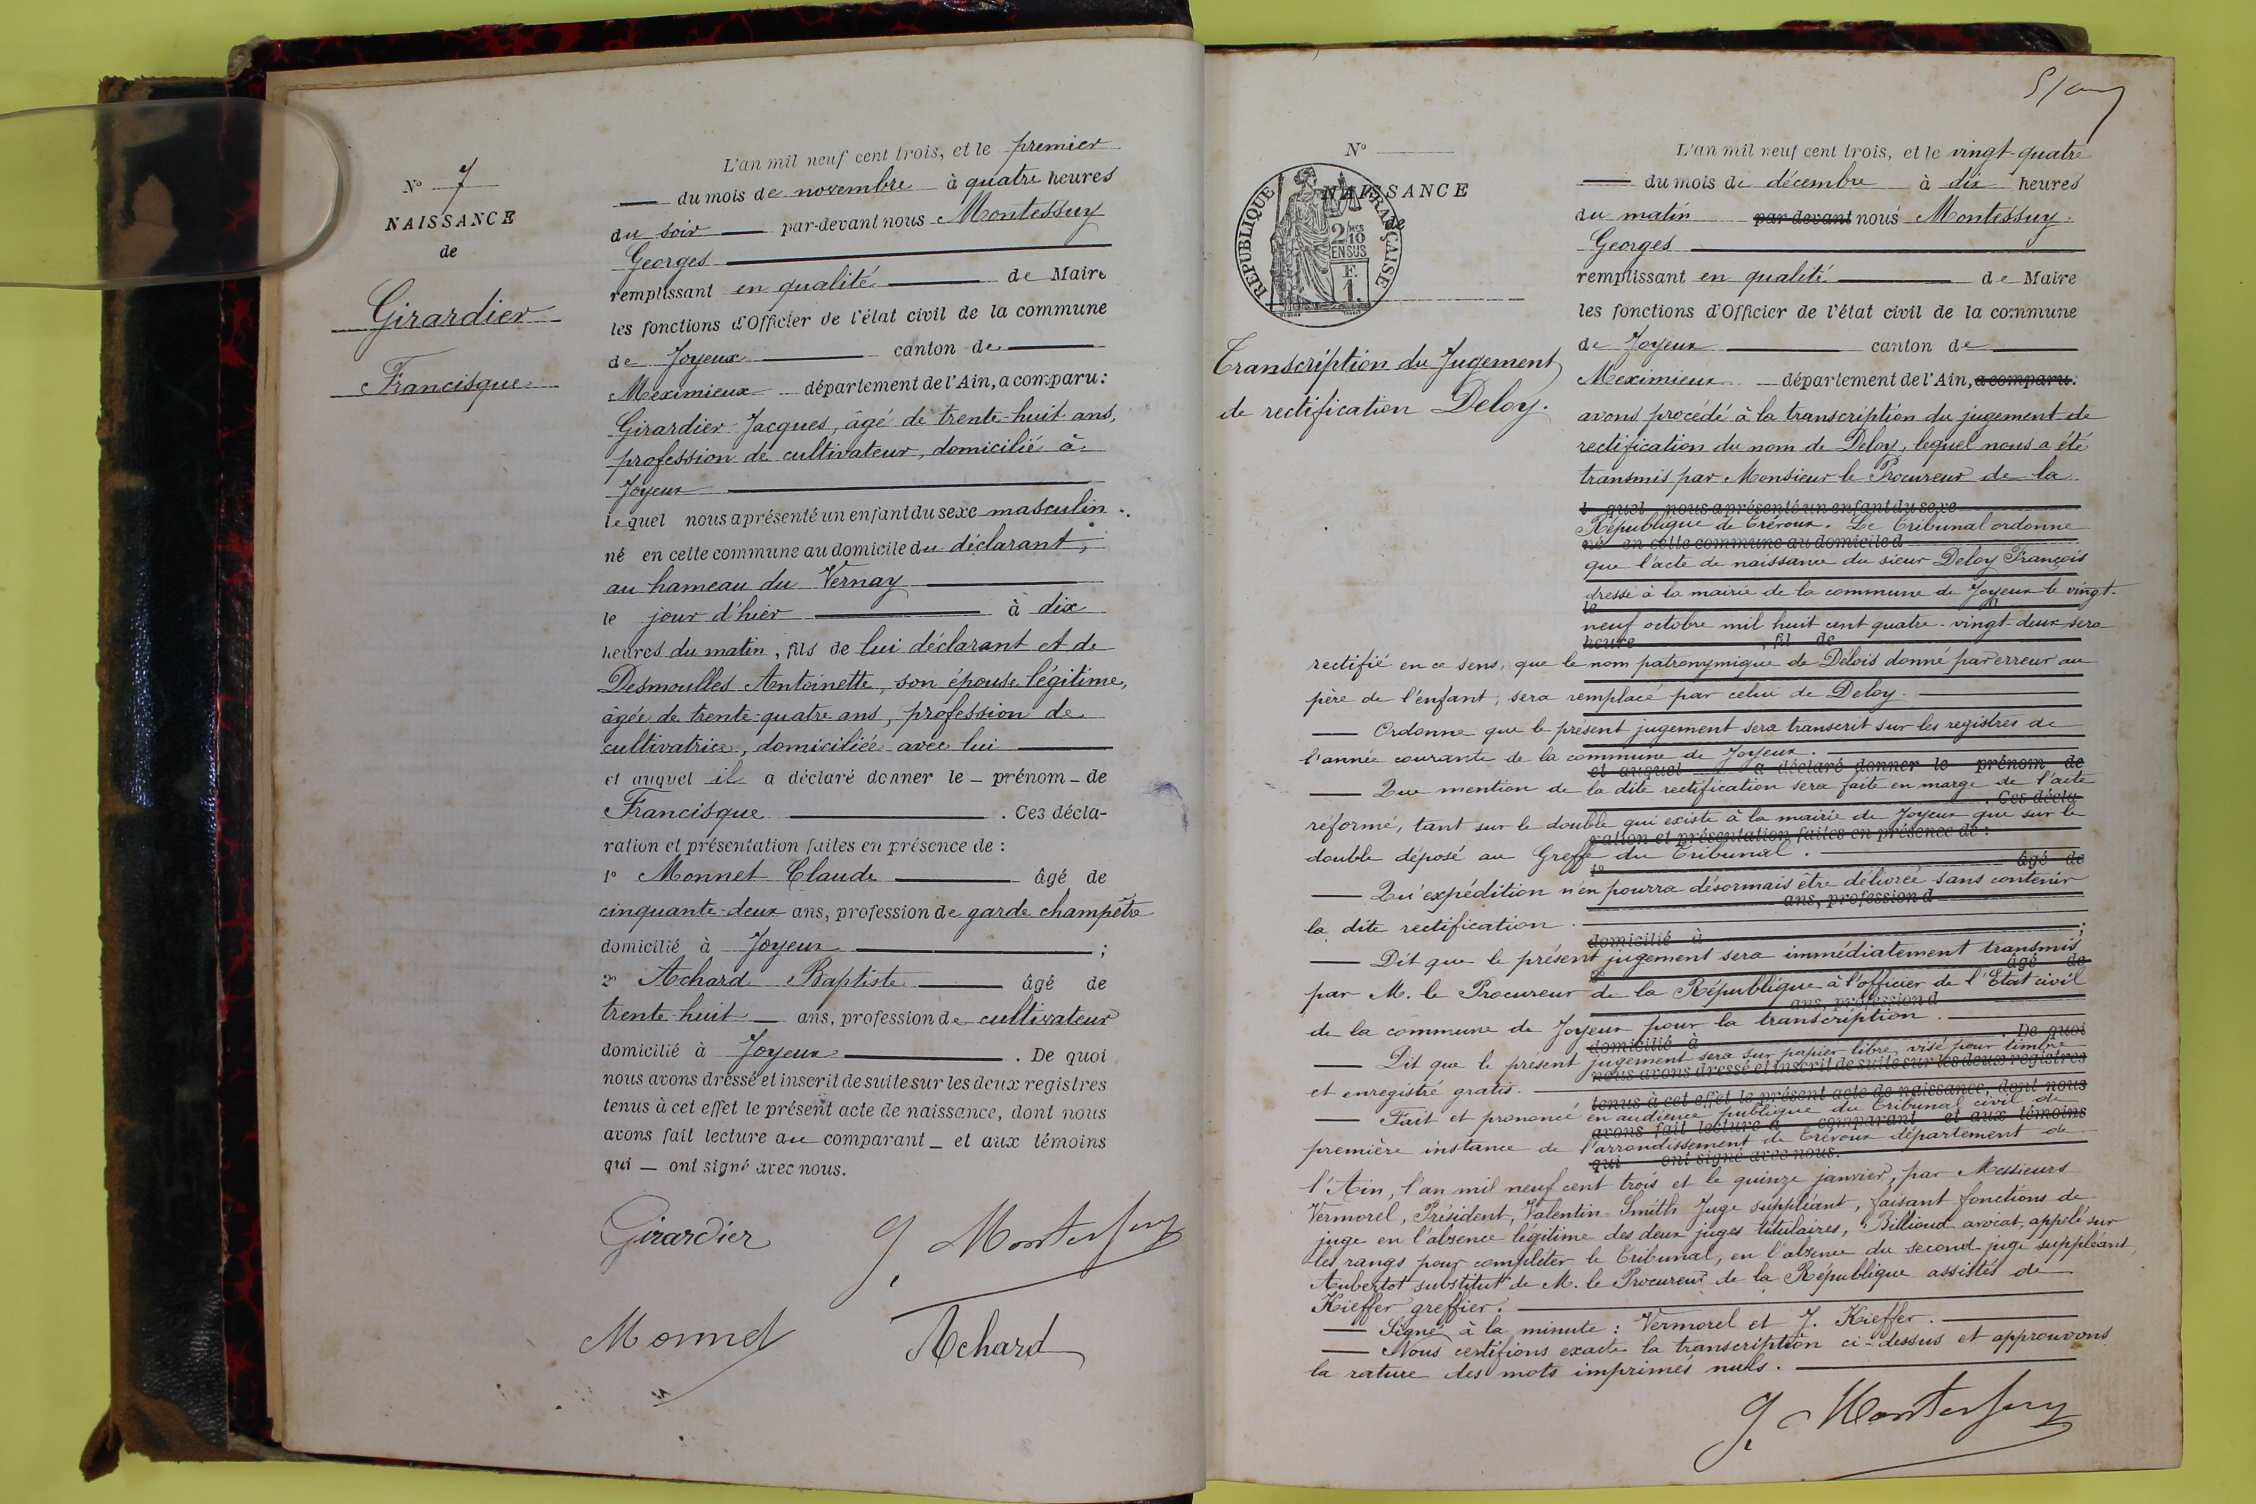 N° 7
NAISSANCE
de
Girardier
Francisque
L'an mil neuf cent trois, et le premier
du mois de novembre à quatre heures
du soir par-devant nous Montessuy
Georges
remplissant en qualité de Maire
les fonctions d'Officier de l'état civil de la commune
de Joyeux canton de
Meximieux département de l'Ain, a comparu:
Girardier Jacques, âgé de trente-huit ans,
profession de cultivateur, domicilié à
Joyeux
lequel nous a présenté un enfant du sexe masculin
né en cette commune au domicile du déclarant,
au hameau du Vernay
le jour d'hier à dix
heures du matin, fils de lui déclarant et de
Desmoulles Antoinette, son épouse légitime,
âgée de trente-quatre ans, profession de
cultivatrice, domiciliée avec lui
et auquel il a déclaré donner le prénom de
Francisque. Ces décla-
ration et présentation faites en présence de :
1° Monnet Claude âgé de
cinquante-deux ans, profession de garde champêtre
domicilié à Joyeux ;
2° Achard Baptiste âgé de
trente huit ans, profession de cultivateur
domicilié à Joyeux. De quoi
nous avons dressé et inscrit de suite sur les deux registres
tenus à cet effet le présent acte de naissance, dont nous
avons fait lecture au comparant et aux témoins
qui ont signé avec nous.
Girardier G. Montessuy
Monnet Achard
N°
NAISSANCE
de
REPUBLIQUE FRANÇAISE
2/10
EN SUS
F.
1.
Transcription du Jugement
de rectification Deloy.
L'an mil neuf cent trois, et le vingt-quatre
du mois de décembre à dix heures
du matin par-devant nous Montessuy
Georges
remplissant en qualité de Maire
les fonctions d'Officier de l'état civil de la commune
de Joyeux canton de
Meximieux département de l'Ain, a comparu:
avons procédé à la transcription du jugement de
rectification du nom de Deloy, lequel nous a été
transmis par Monsieur le Procureur de la
l quel nous a présenté un enfant du sexe
République de Trévoux. Le Tribunal ordonne
né en cette commune au domicile d
que l'acte de naissance du sieur Deloy François
dressé à la mairie de la commune de Joyeux le vingt-
le
neuf octobre mil huit cent quatre-vingt deux sera
heure , fil de
rectifié en ce sens, que le nom patronymique de Delois donné par erreur au
père de l'enfant, sera remplacé par celui de Deloy.
Ordonne que le présent jugement sera transcrit sur les registres de
l'année courante de la commune de Joyeux.
et auquel a déclaré donner le prénom de
Que mention de la dite rectification sera faite en marge de l'acte
. Ces décla-
réformé, tant sur le double qui existe à la mairie de Joyeux que sur le
ration et présentation faites en présence de :
double déposé au Greffe du Tribunal.
1° âgé de
Qu'expédition n'en pourra désormais être délivrée sans contenir
ans, profession d
la dite rectification.
domicilié à ;
Dit que le présent jugement sera immédiatement transmis
2° âgé de
par M. le Procureur de la République à l'officier de l'Etat civil
ans, profession d
de la commune de Joyeux pour la transcription.
domicilié à . De quoi
Dit que le présent jugement sera sur papier libre, visé pour timbre
nous avons dressé et inscrit de suite sur les deux registres
et enregistré gratis.
tenus à cet effet le présent acte de naissance, dont nous
Fait et prononcé en audience publique du Tribunal civil de
avons fait lecture a comparant et aux témoins
première instance de l'arrondissement de Trévoux département de
qui ont signé avec nous.
l'Ain, l'an mil neuf cent trois et le quinze janvier, par Messieurs
Vermorel, Président, Valentin-Smith Juge suppléant, faisant fonctions de
juge en l'absence légitime des deux juges titulaires, Billioud avocat, appelé sur
les rangs pour compléter le Tribunal, en l'absence du second juge suppléant,
Aubertot substitut de M. le Procureur de la République assistés de
Kieffer greffier.
Signé à la minute : Vermorel et J. Kieffer.
Nous certifions exacte la transcription ci-dessus et approuvons
la rature des mots imprimés nuls.
G. Montessuy